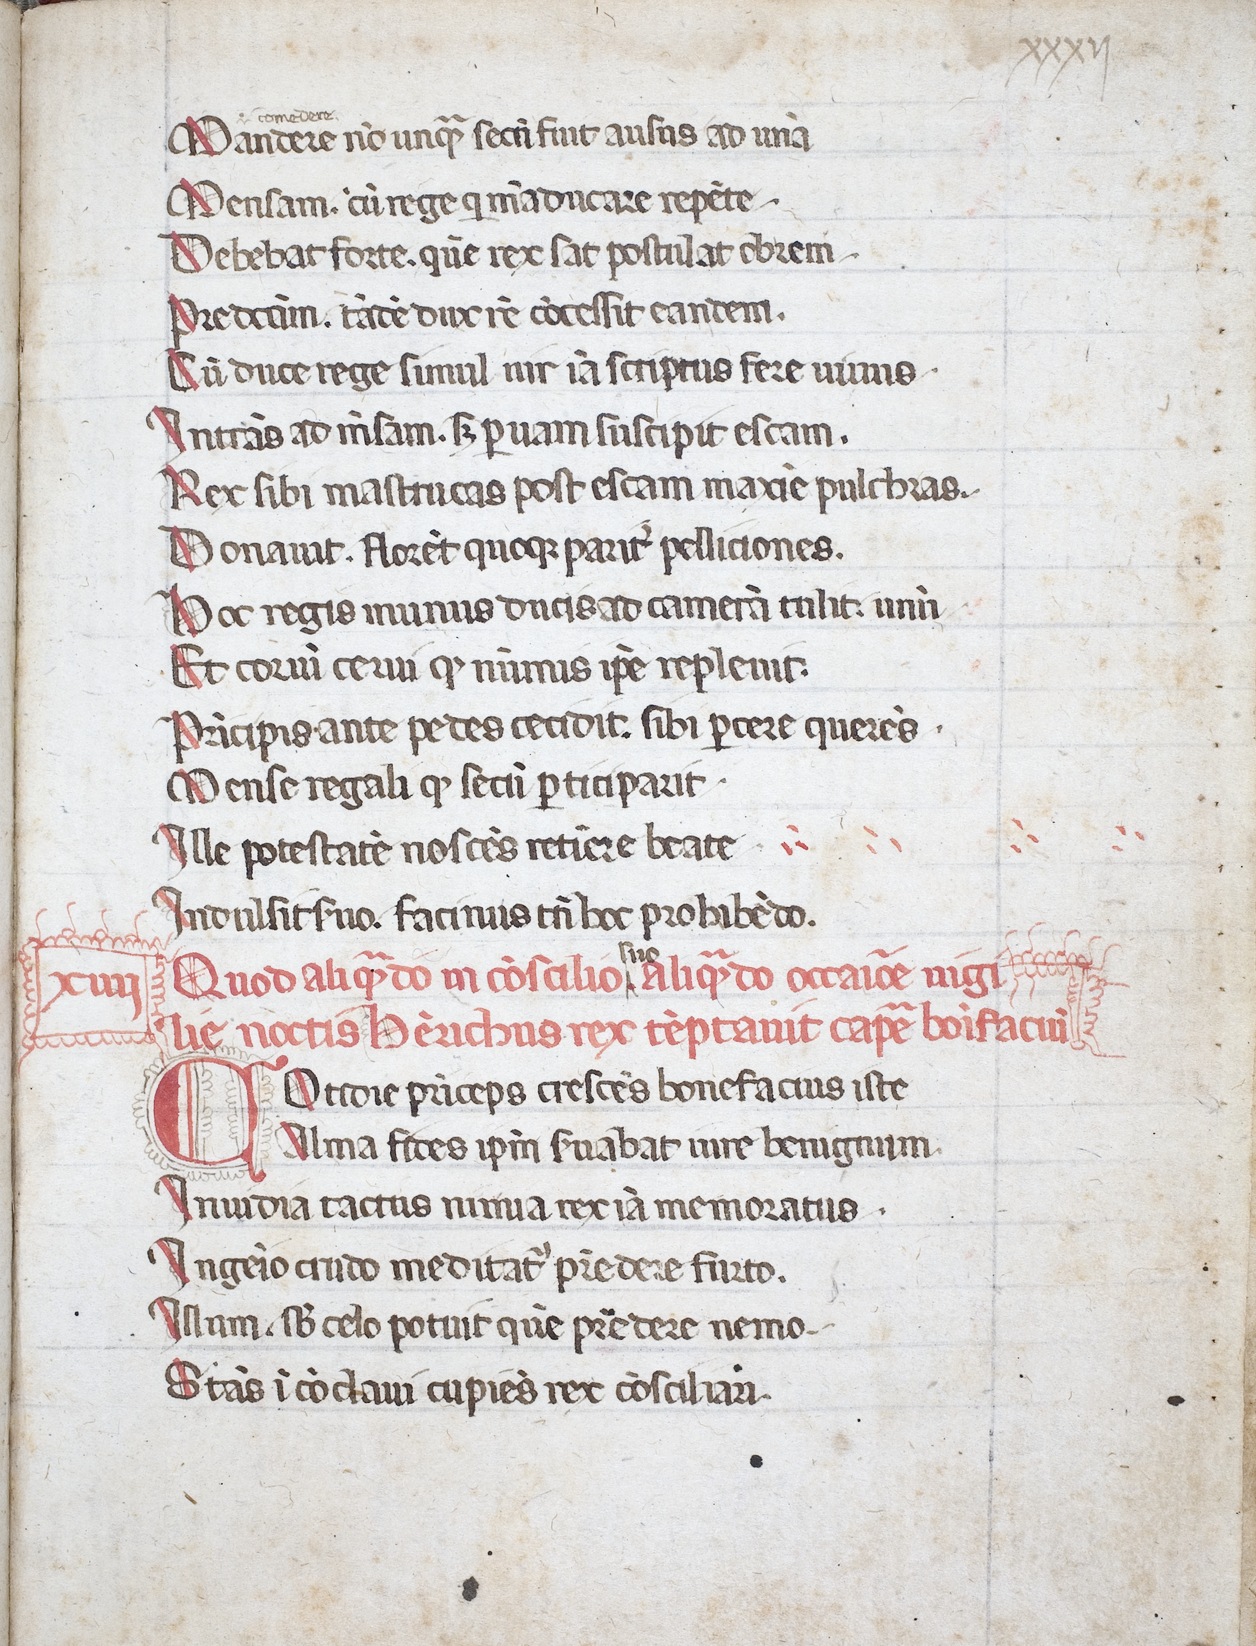 xxxij
.i. comedere.
Mandere nō unqᷓ secū fuit ausus ad unā
Mensam. cū rege q māducare repēte
Debebat forte. quē rex sat postulat obrem
Predcūm. tādē dux rē cōcessit eandem.
Cū duce rege simul uir iā scriptus fere uimus
Intrās ad mn̄sam. sꝫ ꝑuam suscipit escam.
Rex sibi mastrucas post escam maxīe pulchras.
Donauit. florēt quoqꝫ parit̾ pelliciones.
Hoc regis munus ducis ad camerā tulit. unū
Et cornū cerui qꝫ nūmis ip̄e repleuit.
Prīcipis ante pedes cecidit. sibi ꝑcere querēs
Mense regali qꝫ secū ꝑticiparit
Ille potestatē noscēs retīere beate
Indulsit suo. facinus tn̄ hoc prohibēdo.
xiiij
suo
Quod aliqᷓdo in cōscilio aliqᷓdo occaiōe uigi
lie noctis Hērichus rex tēptauit cap̄e boīfaciū
Qotidie prīceps crescēs bonefacius iste
Alma fides ip̄m suabat iure benignum.
Inuidia tactus nimia rex iā memoratus
Ingēio crudo meditat̾ prēdere furto.
Illum. sꝫ celo potuit quē prēdere nemo
Stās ī cōclaui cupiēs rex cōsciliari.